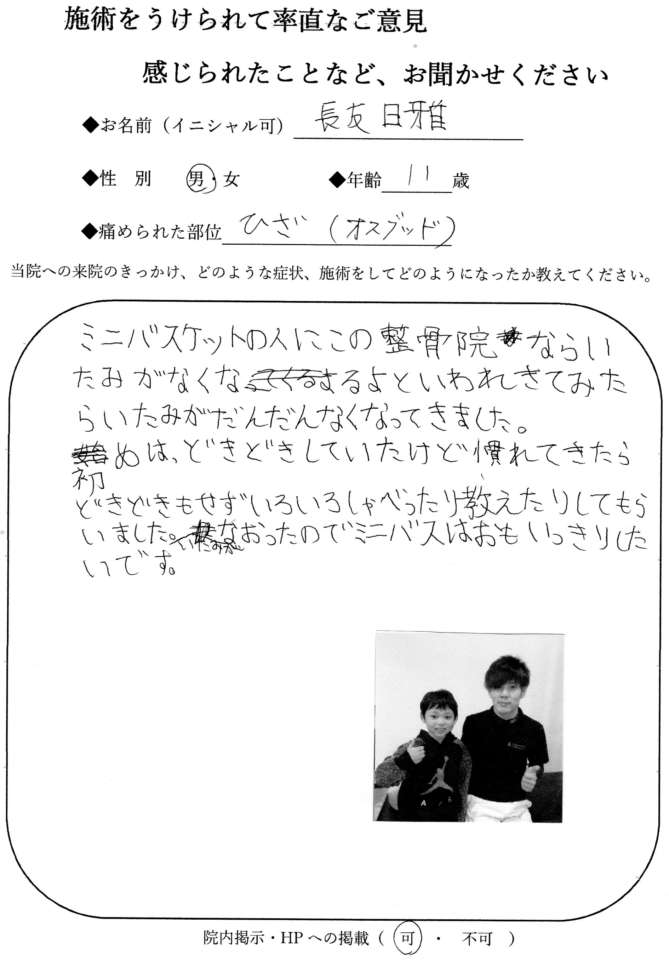 施術をうけられて率直なご意見
感じられたことなど、お聞かせください
◆お名前（イニシャル可） 長友日雅
◆性　別　男・女　◆年齢 11 歳
◆痛められた部位 ひざ (オスグッド)
当院への来院のきっかけ、どのような症状、施術をしてどのようになったか教えてください。
ミニバスケットの人にこの整骨院ならい
たみがなくなるよといわれきてみた
らいたみがだんだんなくなってきました。
初めは、どきどきしていたけど慣れてきたら
どきどきもせずいろいろしゃべったり教えたりしてもら
いました。いたみがなおったのでミニバスはおもいっきりした
いです。
院内掲示・HPへの掲載（ 可 ・ 不可 ）